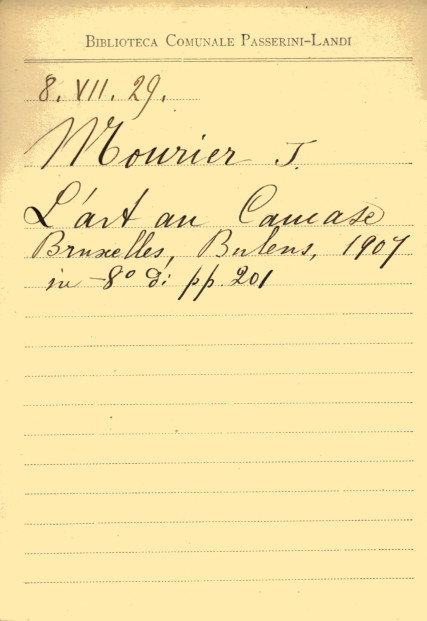 BIBLIOTECA COMUNALE PASSERINI-LANDI
8. VII. 29.
Mourier J.
L'art au Caucase
Bruxelles, Bulens, 1907
in -8° di pp. 201